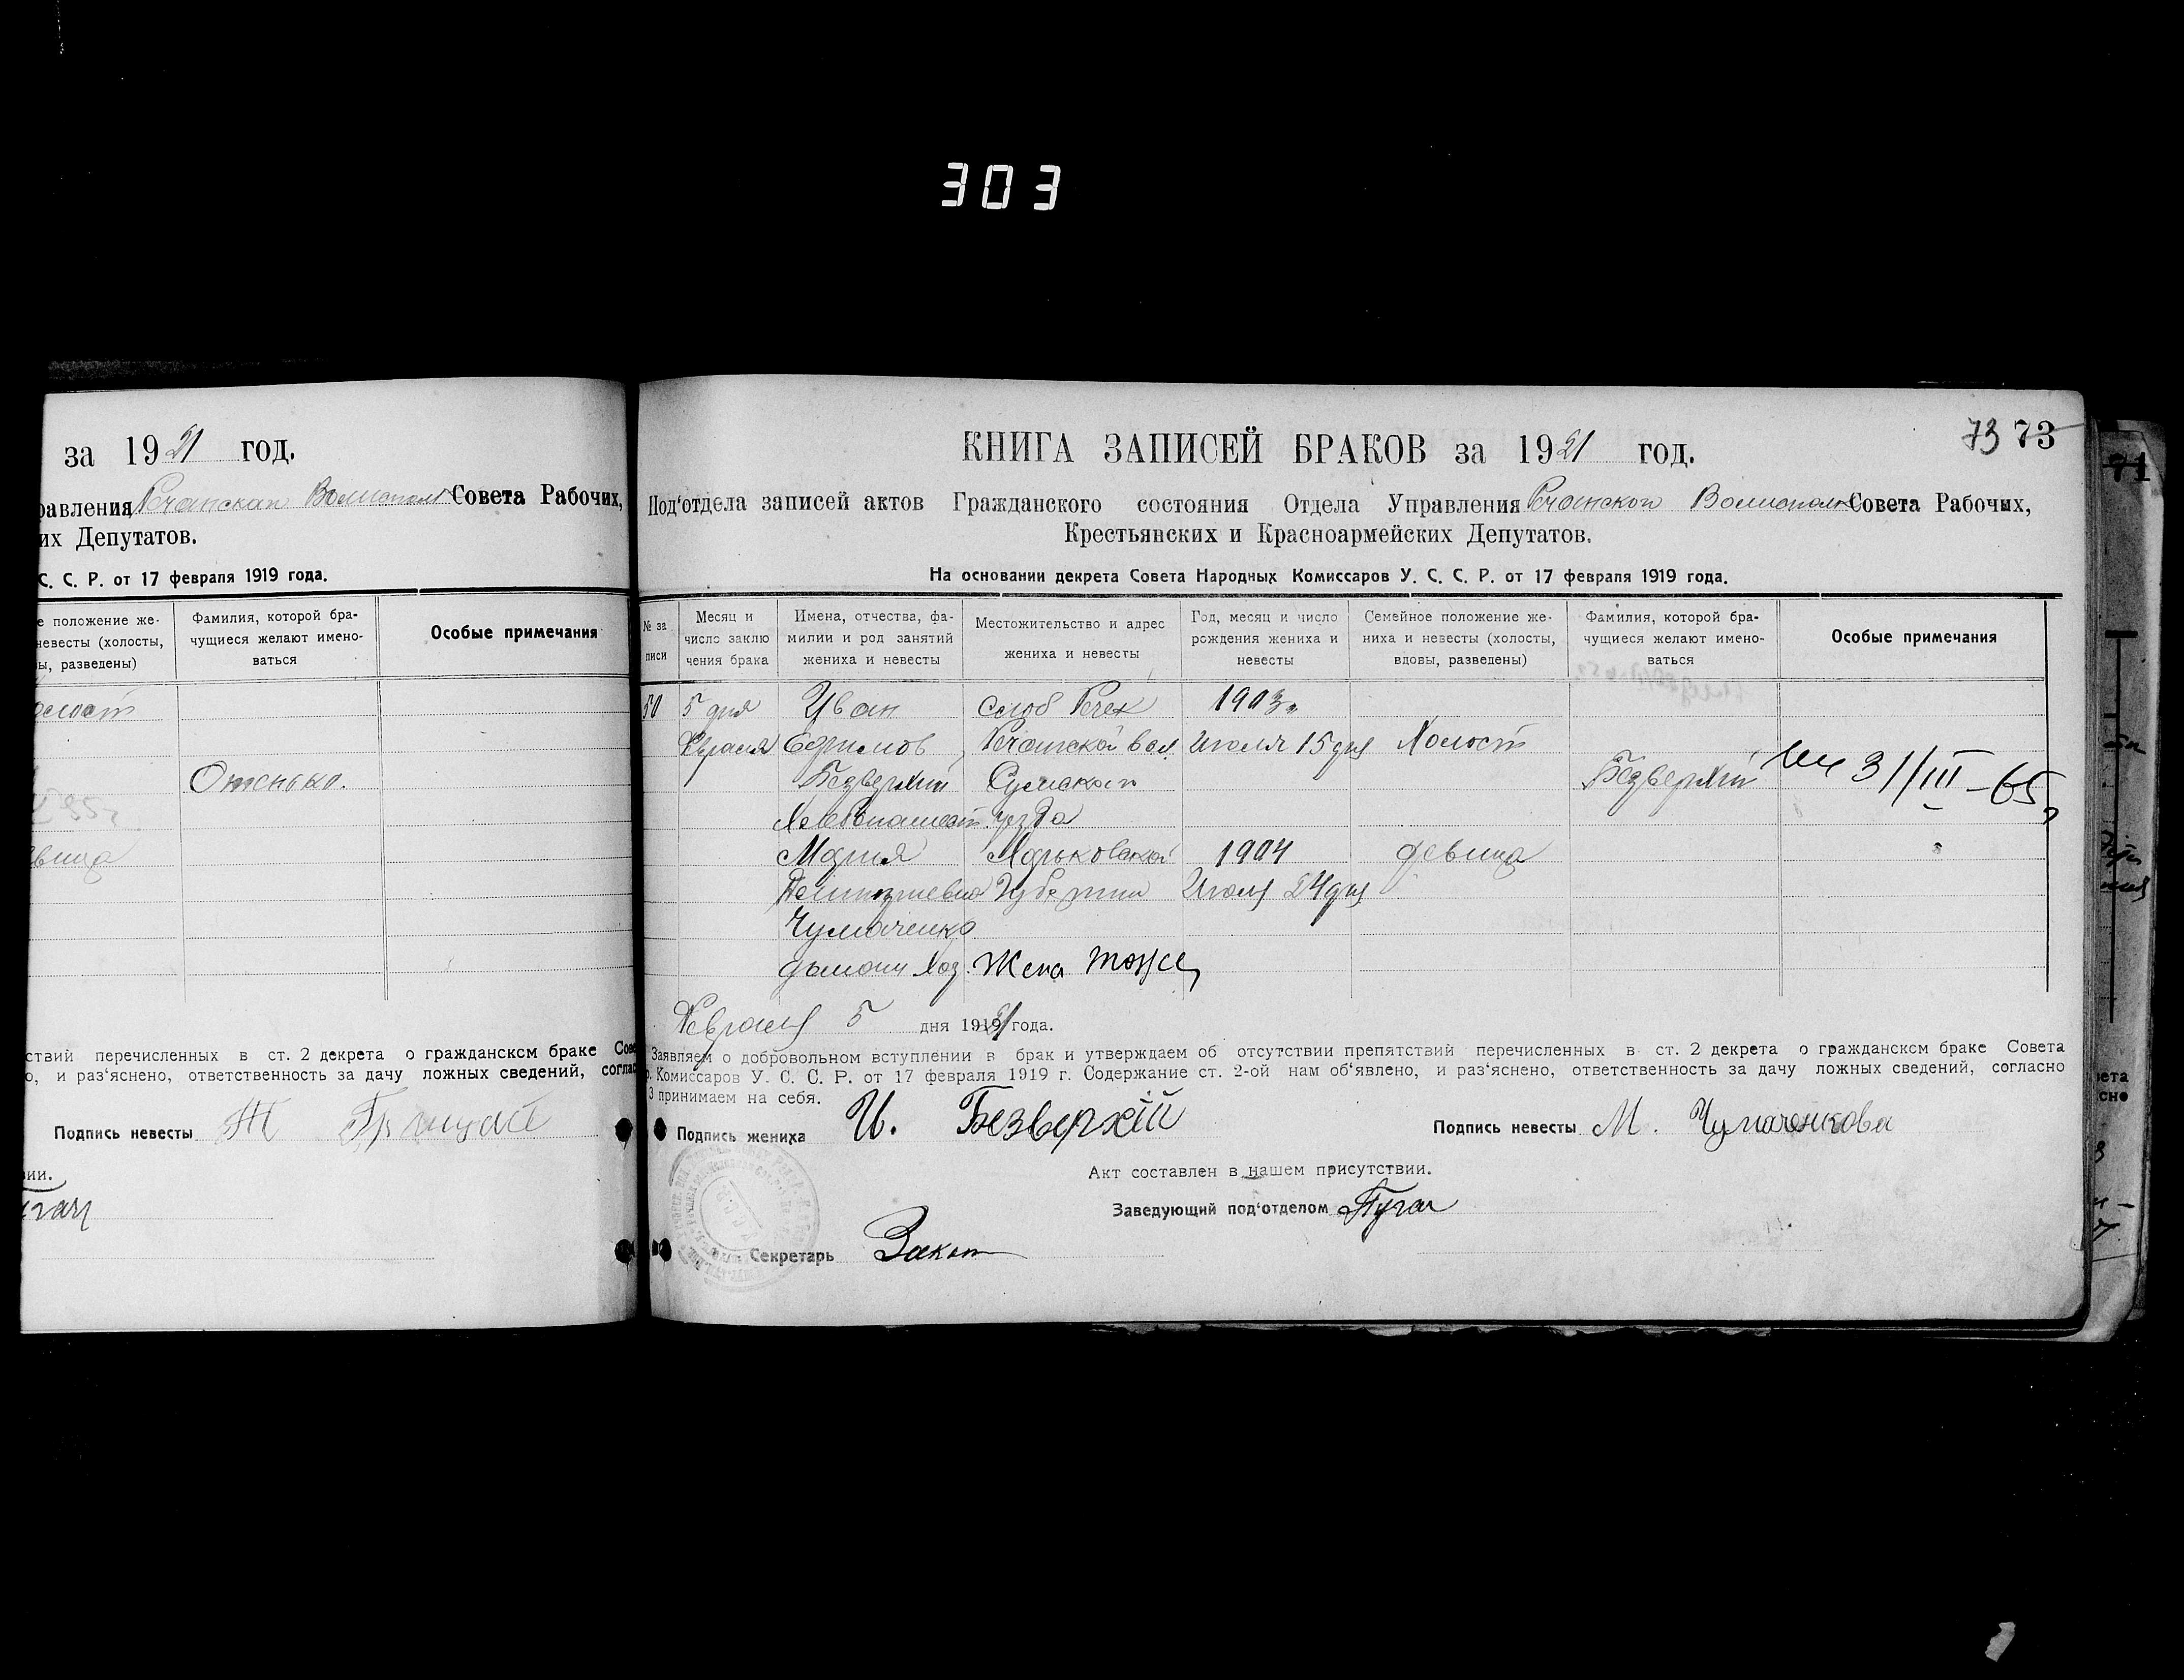 303
за 1921 год.
равления Речанской Волисполк Совета Рабочих,
их Депутатов.
С. С. Р. от 17 февраля 1919 года.
е положение же-
невесты (холосты,
ы, разведены)
Фамилия, которой бра-
чущиеся желают имено-
ваться
Особые примечания
олост
вица
ствий перечисленных в ст. 2 декрета о гражданском браке Сове
о, и раз'яснено, ответственность за дачу ложных сведений, соглас
Подпись невесты
ии.
73 73
КНИГА ЗАПИСЕЙ БРАКОВ за 1921 год.
Под'отдела записей актов Гражданского состояния Отдела Управления Речанской Волисполк Совета Рабочих,
Крестьянских и Красноармейских Депутатов.
На основании декрета Совета Народных Комиссаров У. С. С. Р. от 17 февраля 1919 года.
№ за
писи
Месяц и
число заклю
чения брака
Имена, отчества, фа-
милии и род занятий
жениха и невесты
Местожительство и адрес
жениха и невесты
Год, месяц и число
рождения жениха и
невесты
Семейное положение же-
ниха и невесты (холосты,
вдовы, разведены)
Фамилия, которой бра-
чущиеся желают имено-
ваться
Особые примечания
50 5 дня Иван слоб Речек 1903г.
Февраля Ефимов Речанской вол. Июля 15 дня Холост
Безверхий Сумской Безверхий 31/III-65г
Хлебопашест. уезда
Мария Харьковской 1904 девица
Дмитриевна Губернии Июля 24 дня
Чумаченко
домаш хоз. Жена тоже
Февраля 5 дня 1921 года.
Заявляем о добровольном вступлении в брак и утверждаем об отсутствии препятствий перечисленных в ст. 2 декрета о гражданском браке Совета
р. Комиссаров У. С. С. Р. от 17 февраля 1919 г. Содержание ст. 2-ой нам об'явлено, и раз'яснено, ответственность за дачу ложных сведений, согласно
3 принимаем на себя.
Подпись жениха И. Безверхій Подпись невесты М. Чумаченкова
Акт составлен в нашем присутствии.
Заведующий под'отделом Пугач
Секретарь
71